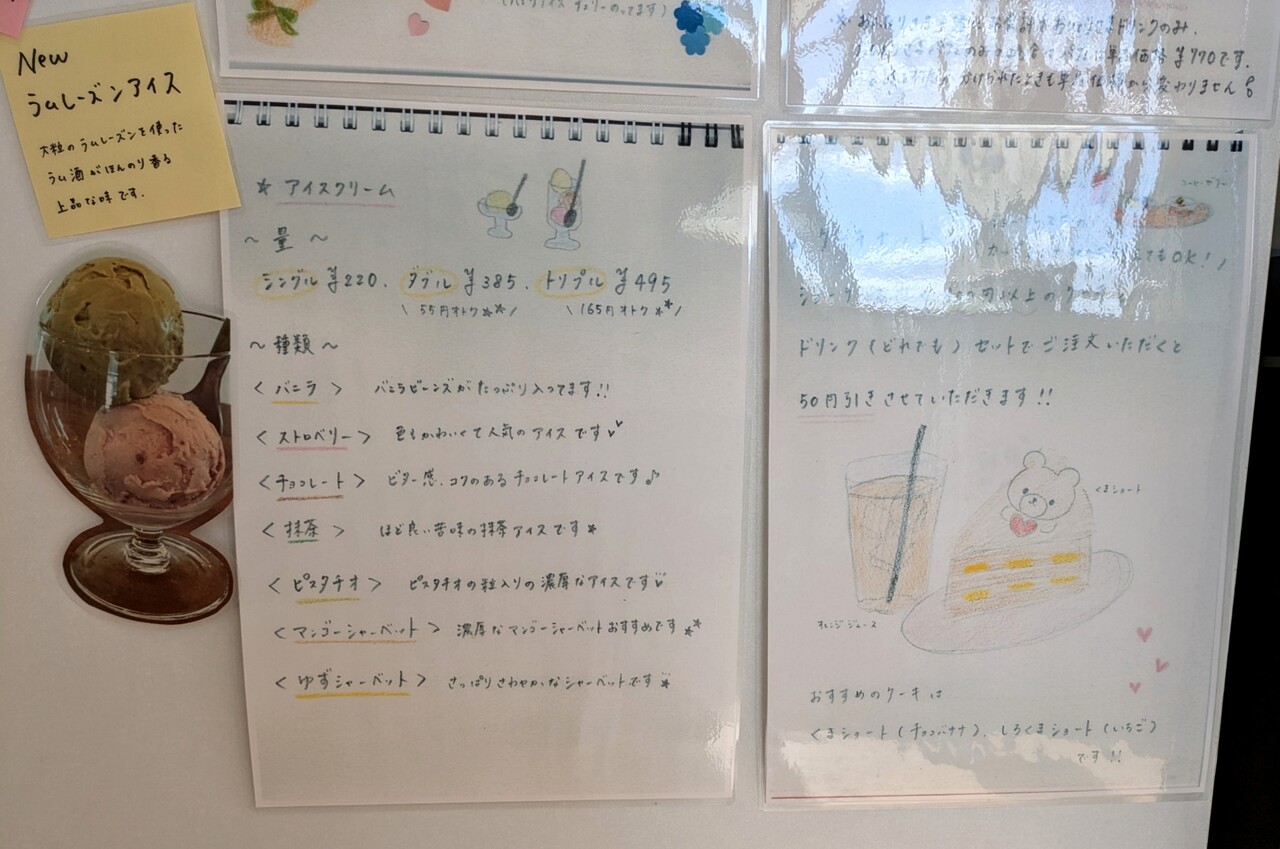 New
ラムレーズンアイス
大粒のラムレーズンを使った
ラム酒がほんのり香る
上品な味です.
チェリーのってます)
ドリンクのみ.
価格 ¥770です.
変わりません
★ アイスクリーム
~ 量 ~
シングル ¥220. ダブル ¥385. トリプル ¥495
\ 55円オトク / \ 165円オトク /
~ 種類 ~
< バニラ > バニラビーンズがたっぷり入ってます!!
< ストロベリー > 色もかわいくて人気のアイスです
< チョコレート > ビター感.コクのあるチョコレートアイスです♪
< 抹茶 > ほど良い苦味の抹茶アイスです★
< ピスタチオ > ピスタチオの粒入りの濃厚なアイスです
< マンゴーシャーベット > 濃厚なマンゴーシャーベットおすすめです
< ゆずシャーベット > さっぱりさわやかなシャーベットです
てもOK! /
円以上の
ドリンク (どれでも) セットでご注文いただくと
50円引きさせていただきます!!
くまショート
オレンジジュース
おすすめのケーキは
くまショート (チョコバナナ). しろくまショート (いちご)
です!!